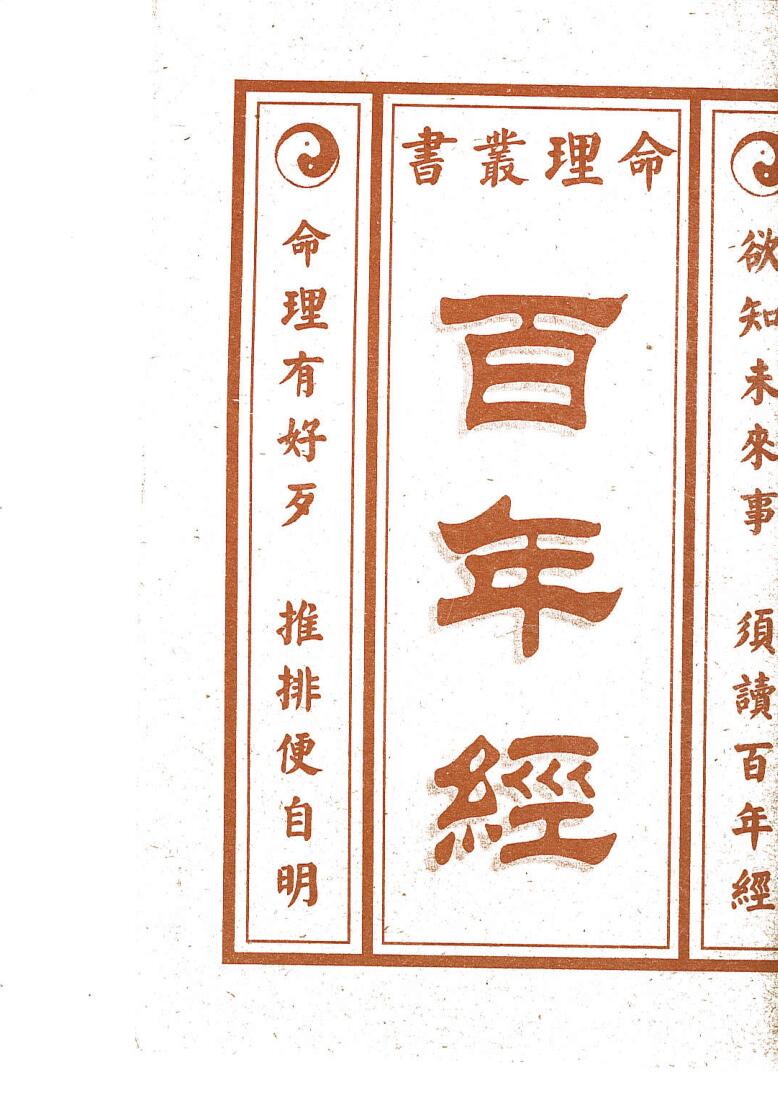 命理叢書
欲知未來事 須讀百年經
百年經
命理有好歹 推排便自明